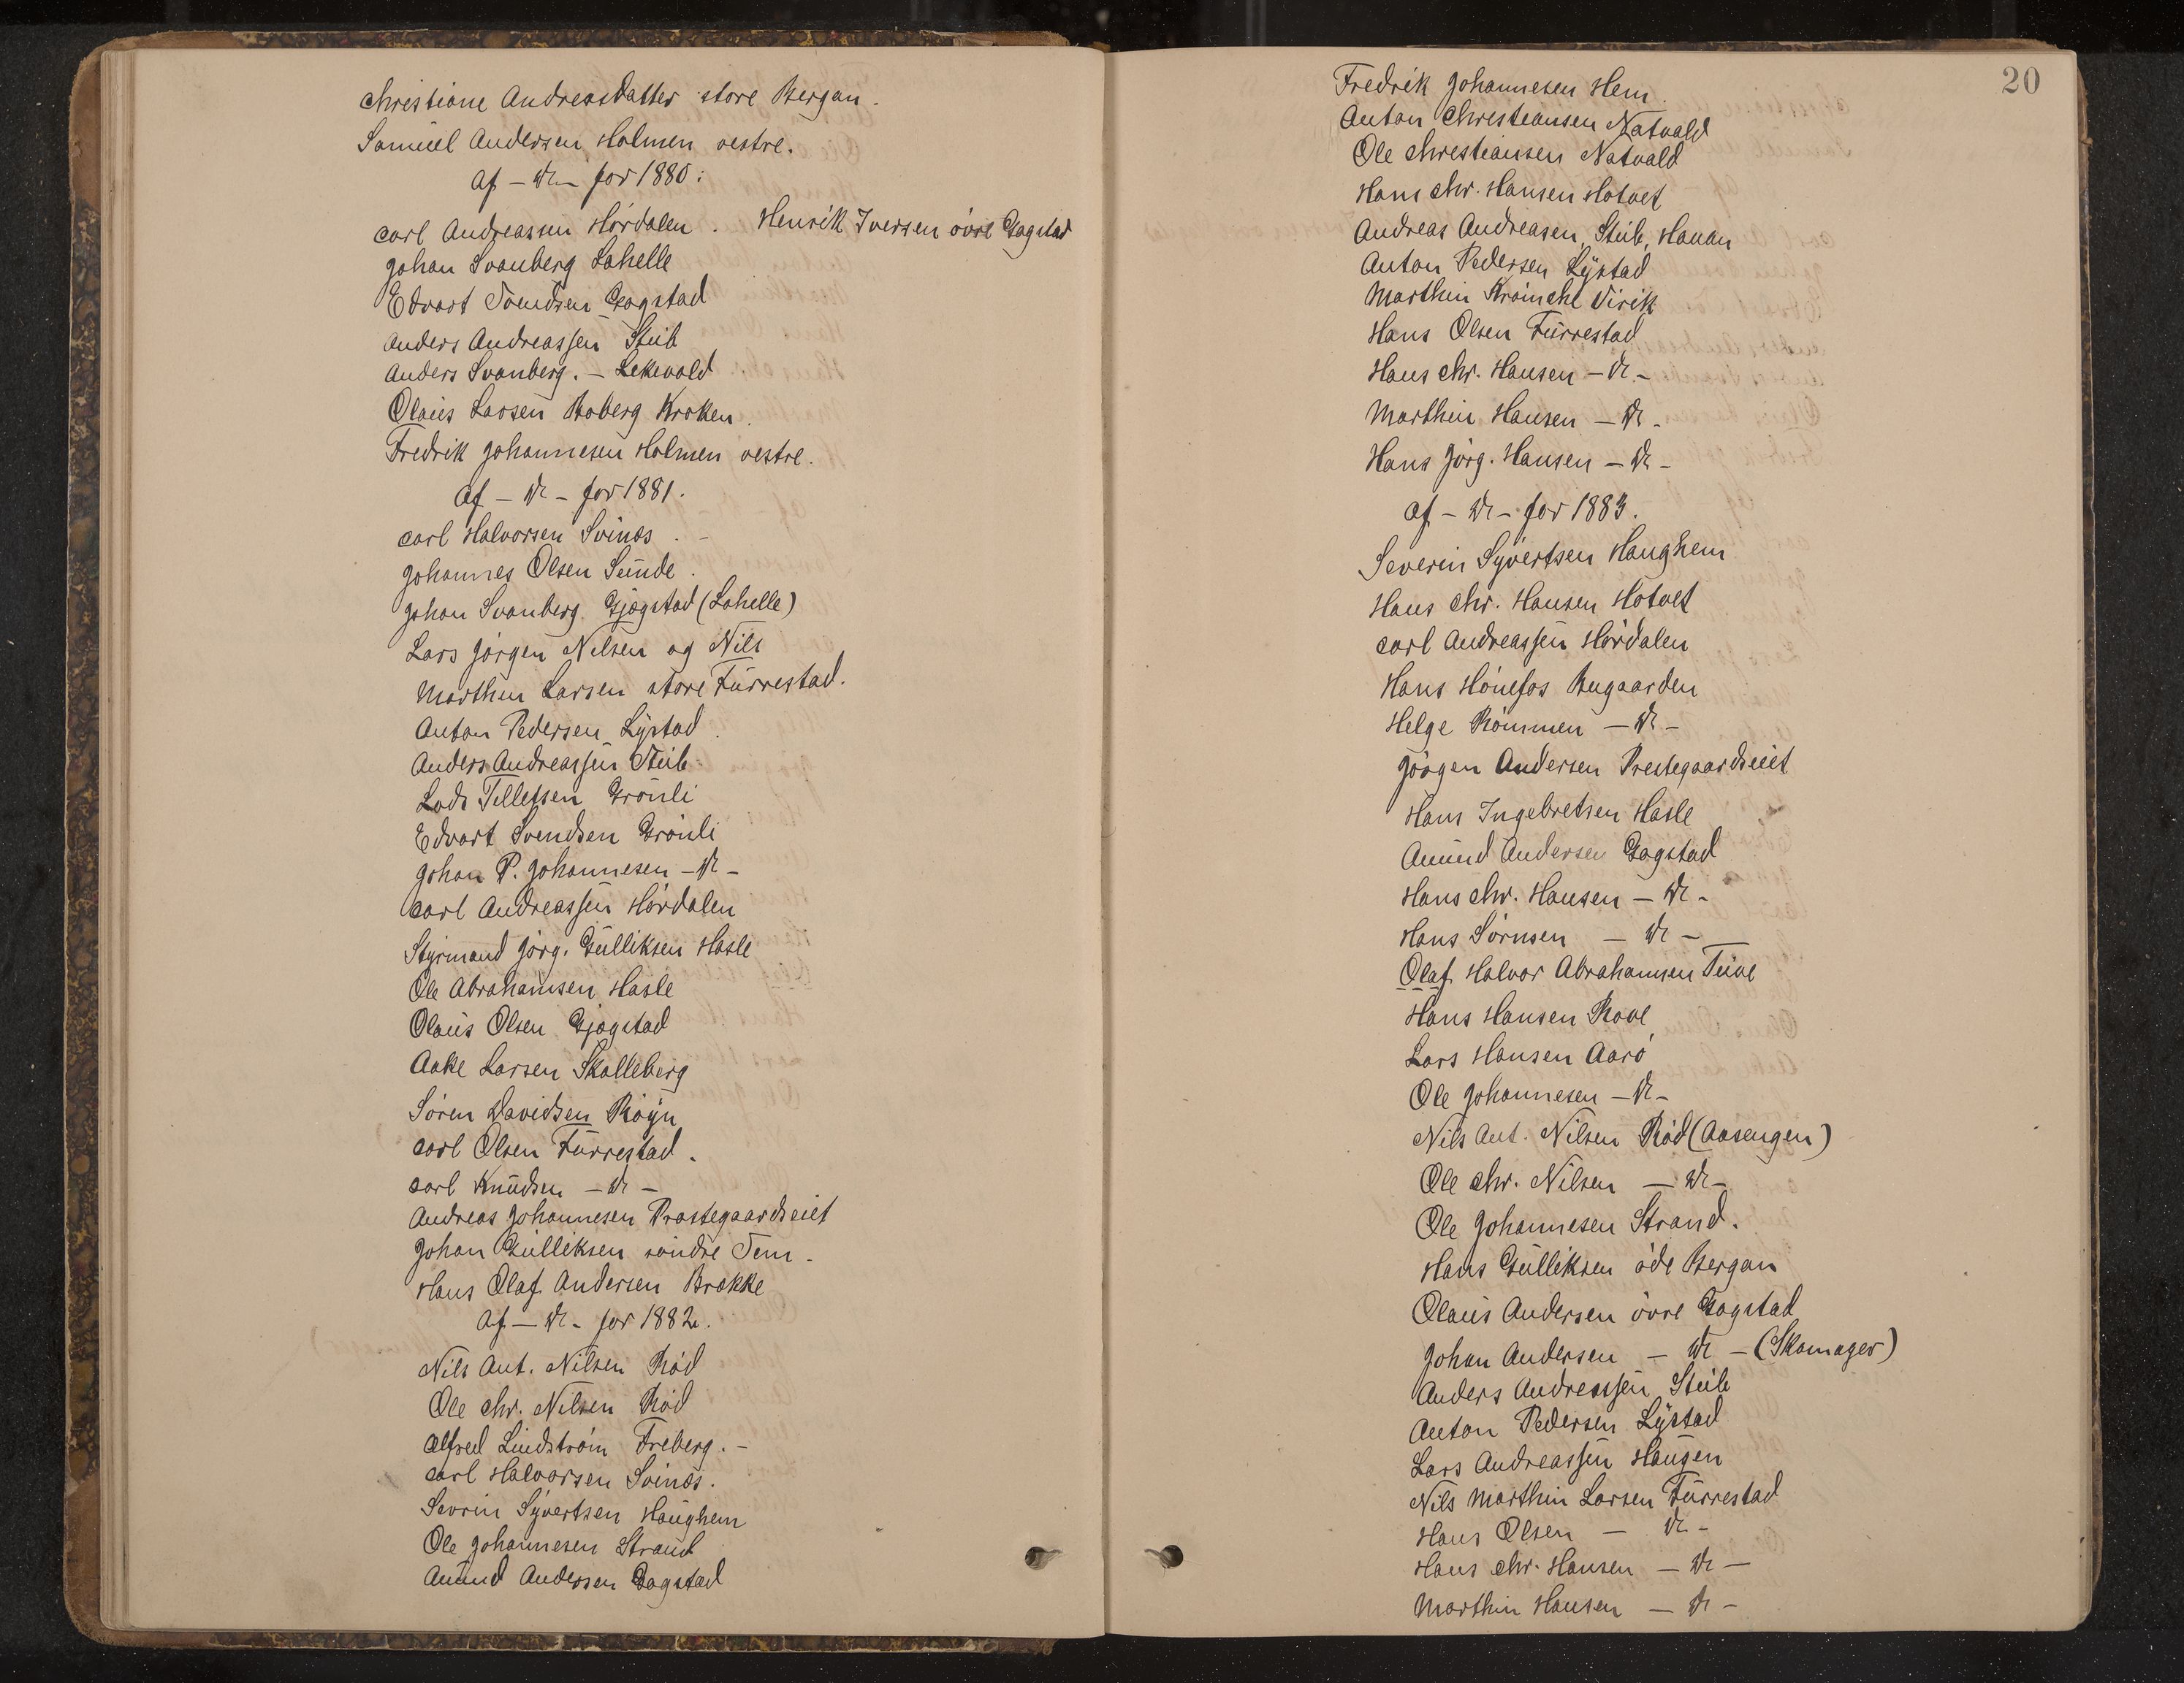 Christiane Andreasdatter store Bergan.
Samuel Andersen Holmen vestre.
Af – Do – for 1880:
Carl Andreassen Hørdalen. Henrik Iversen øvre Gogstad
Johan Svanberg Lahelle
Edvart Svendsen Gogstad
Anders Andreassen Stub
Anders Svanberg. – Lekevold
Olaus Larsen Boberg Kroken.
Fredrik Johannesen Holmen vestre.
Af – Do – for 1881.
Carl Halvorsen Svinæs. –
Johannes Olsen Sunde.
Johan Svanberg Gjøgstad (Lahelle)
Lars Jørgen Nilsen og Nils
Marthin Larsen store Furrestad.
Anton Pedersen Lystad.
Anders Andreassen Stub
Lads Tellefsen Grønli
Edvart Svendsen Grønli
Johan P. Johannesen – Do –
Carl Andreassen Hørdalen
Styrmand Jørg. Gulliksen Hasle
Ole Abrahamsen Hasle
Olaus Olsen Gjøgstad
Aake Larsen Skalleberg
Søren Davidsen Røyn
Carl Olsen Furrestad.
Carl Knudsen – Do –
Andreas Johannesen Præstegaardseiet
Johan Gulliksen søndre Tem.
Hans Olaf Andersen Brekke
Af – Do – for 1882.
Nils Ant. Nilsen Rød
Ole Chr. Nilsen Rød
Alfred Lindstrøm Freberg. –
Carl Halvorsen Svinæs.
Sevrin Syvertsen Haughem
Ole Johannesen Strand
Amund Andersen Gogstad
20
Fredrik Johannesen Hem.
Anton Christiansen Natvald
Ole Christiansen Natvald
Hans Chr. Hansen Hotvet
Andreas Andreasen, Stub, Hauan
Anton Pedersen Lystad
Marthin Virik
Hans Olsen Furrestad
Hans Chr. Hansen – Do –
Marthin Hansen – Do –
Hans Jørg. Hansen – Do –
Af – Do – for 1883.
Severin Syvertsen Haughem
Hans Chr. Hansen Hotvet
Carl Andreassen Hørdalen
Hans Hønefos Bugaarden
Helge Rømmen – Do –
Jørgen Andersen Prestegaardseiet
Hans Ingebretsen Hasle
Amund Andersen Gogstad
Hans Chr. Hansen – Do –
Hans Sørnsen – Do –
Olaf Halvor Abrahamsen Tuve
Hans Hansen Rove
Lars Hansen Aarø
Ole Johannesen – Do –
Nils Ant. Nilsen Rød (Aasengen)
Ole Chr. Nilsen – Do –
Ole Johannesen Strand.
Hans Gulliksen øde Bergan
Olaus Andersen øvre Gogstad
Johan Andersen – Do – (Skomager)
Anders Andreassen Stub
Anton Pedersen Lystad
Lars Andreassen Haugen
Nils Marthin Larsen Furrestad
Hans Olsen – Do –
Hans Chr. Hansen – Do –
Marthin Hansen – Do –